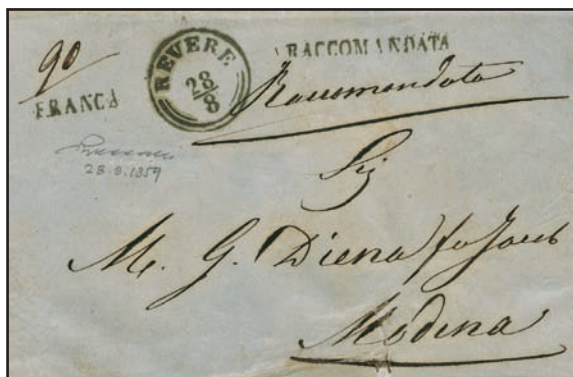 90
FRANCA
REVERE
28
8
RACCOMANDATA
Raccomandata
28.8.1859
M. G. Diena fu Jacob
Modena